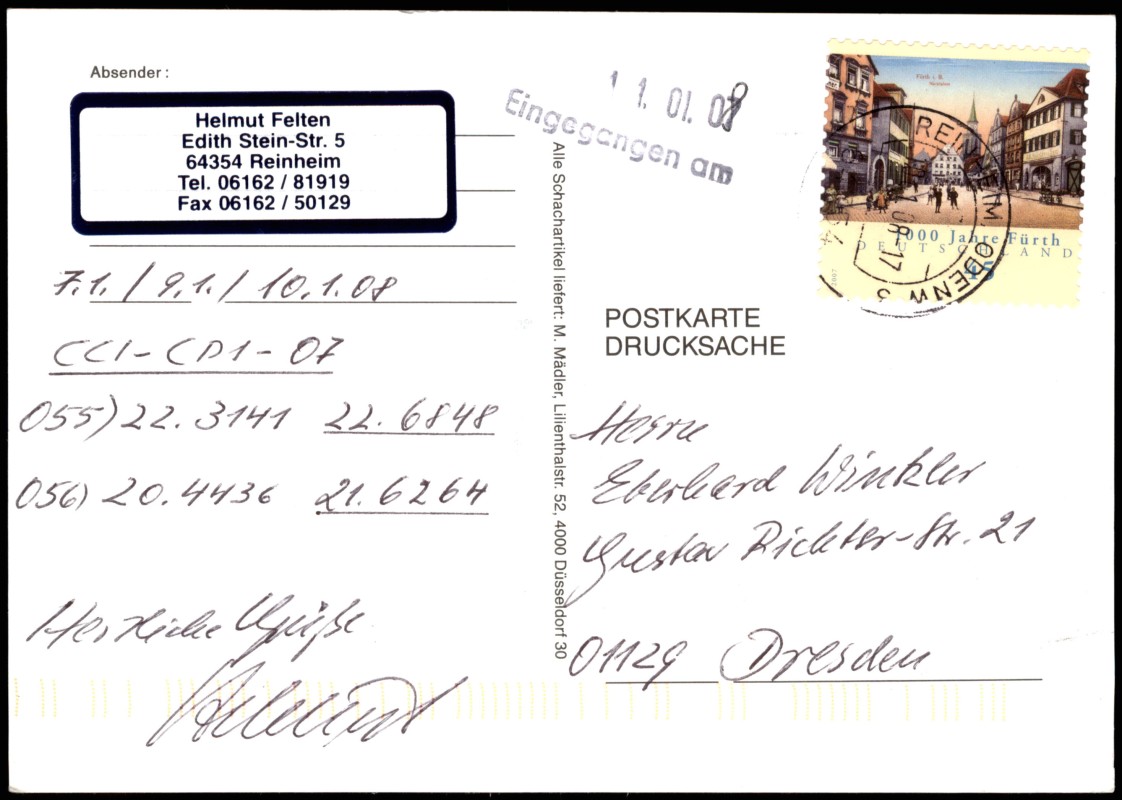 Absender:
Helmut Felten
Edith Stein-Str. 5
64354 Reinheim
Tel. 06162 / 81919
Fax 06162 / 50129
7.1. / 9.1. / 10.1.08
CCI-CD1-07
055) 22. 3141 22. 6848
056) 20. 4436 21. 6264
Herzliche Grüße
Helmut
Alle Schachartikel liefert: M. Mädler, Lilienthalstr. 52, 4000 Düsseldorf 30
1 1. 01. 08
Eingegangen am
Fürth i. B.
1000 Jahre Fürth
DEUTSCHLAND
45
2007
REINHEIM, ODENW
08-17
POSTKARTE
DRUCKSACHE
Herrn
Eberhard Winkler
Gustav Richter-Str. 21
01129 Dresden